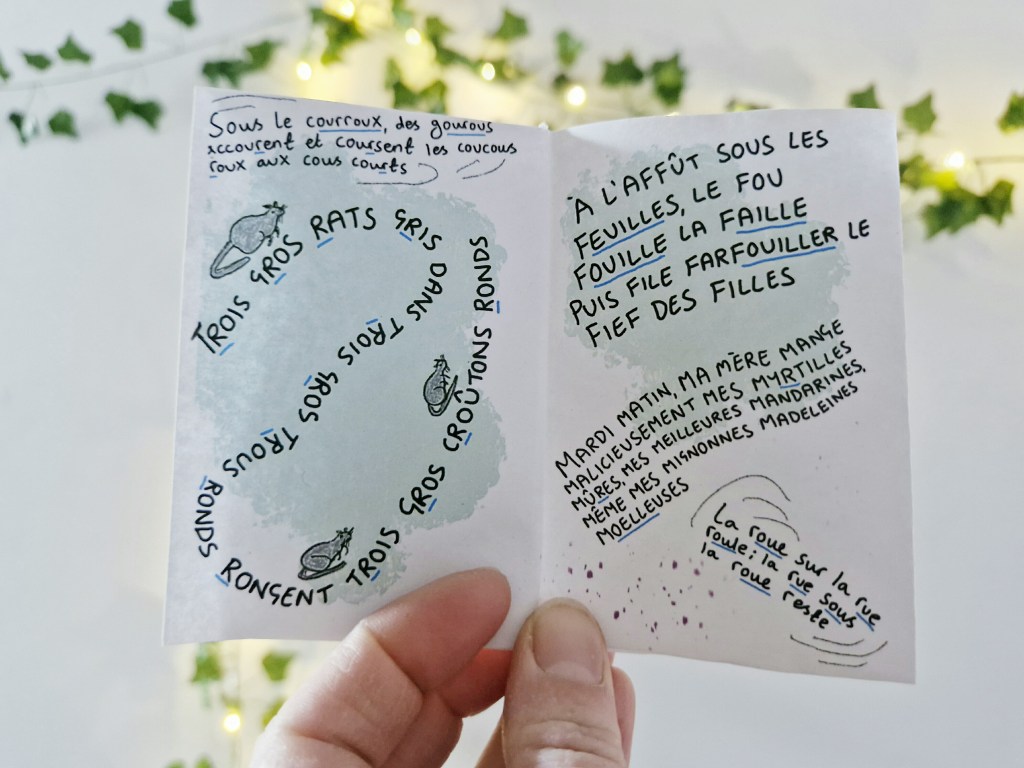 Sous le courroux, des gourous
accourent et coursent les coucous
roux aux cous courts
TROIS GROS RATS GRIS DANS TROIS GROS TROUS RONDS RONGENT TROIS GROS CROÛTONS RONDS
À L'AFFÛT SOUS LES
FEUILLES, LE FOU
FOUILLE LA FAILLE
PUIS FILE FARFOUILLER LE
FIEF DES FILLES
MARDI MATIN, MA MÈRE MANGE
MALICIEUSEMENT MES MYRTILLES
MÛRES, MES MEILLEURES MANDARINES,
MÊME MES MIGNONNES MADELEINES
MOELLEUSES
La roue sur la rue
roule; la rue sous
la roue reste